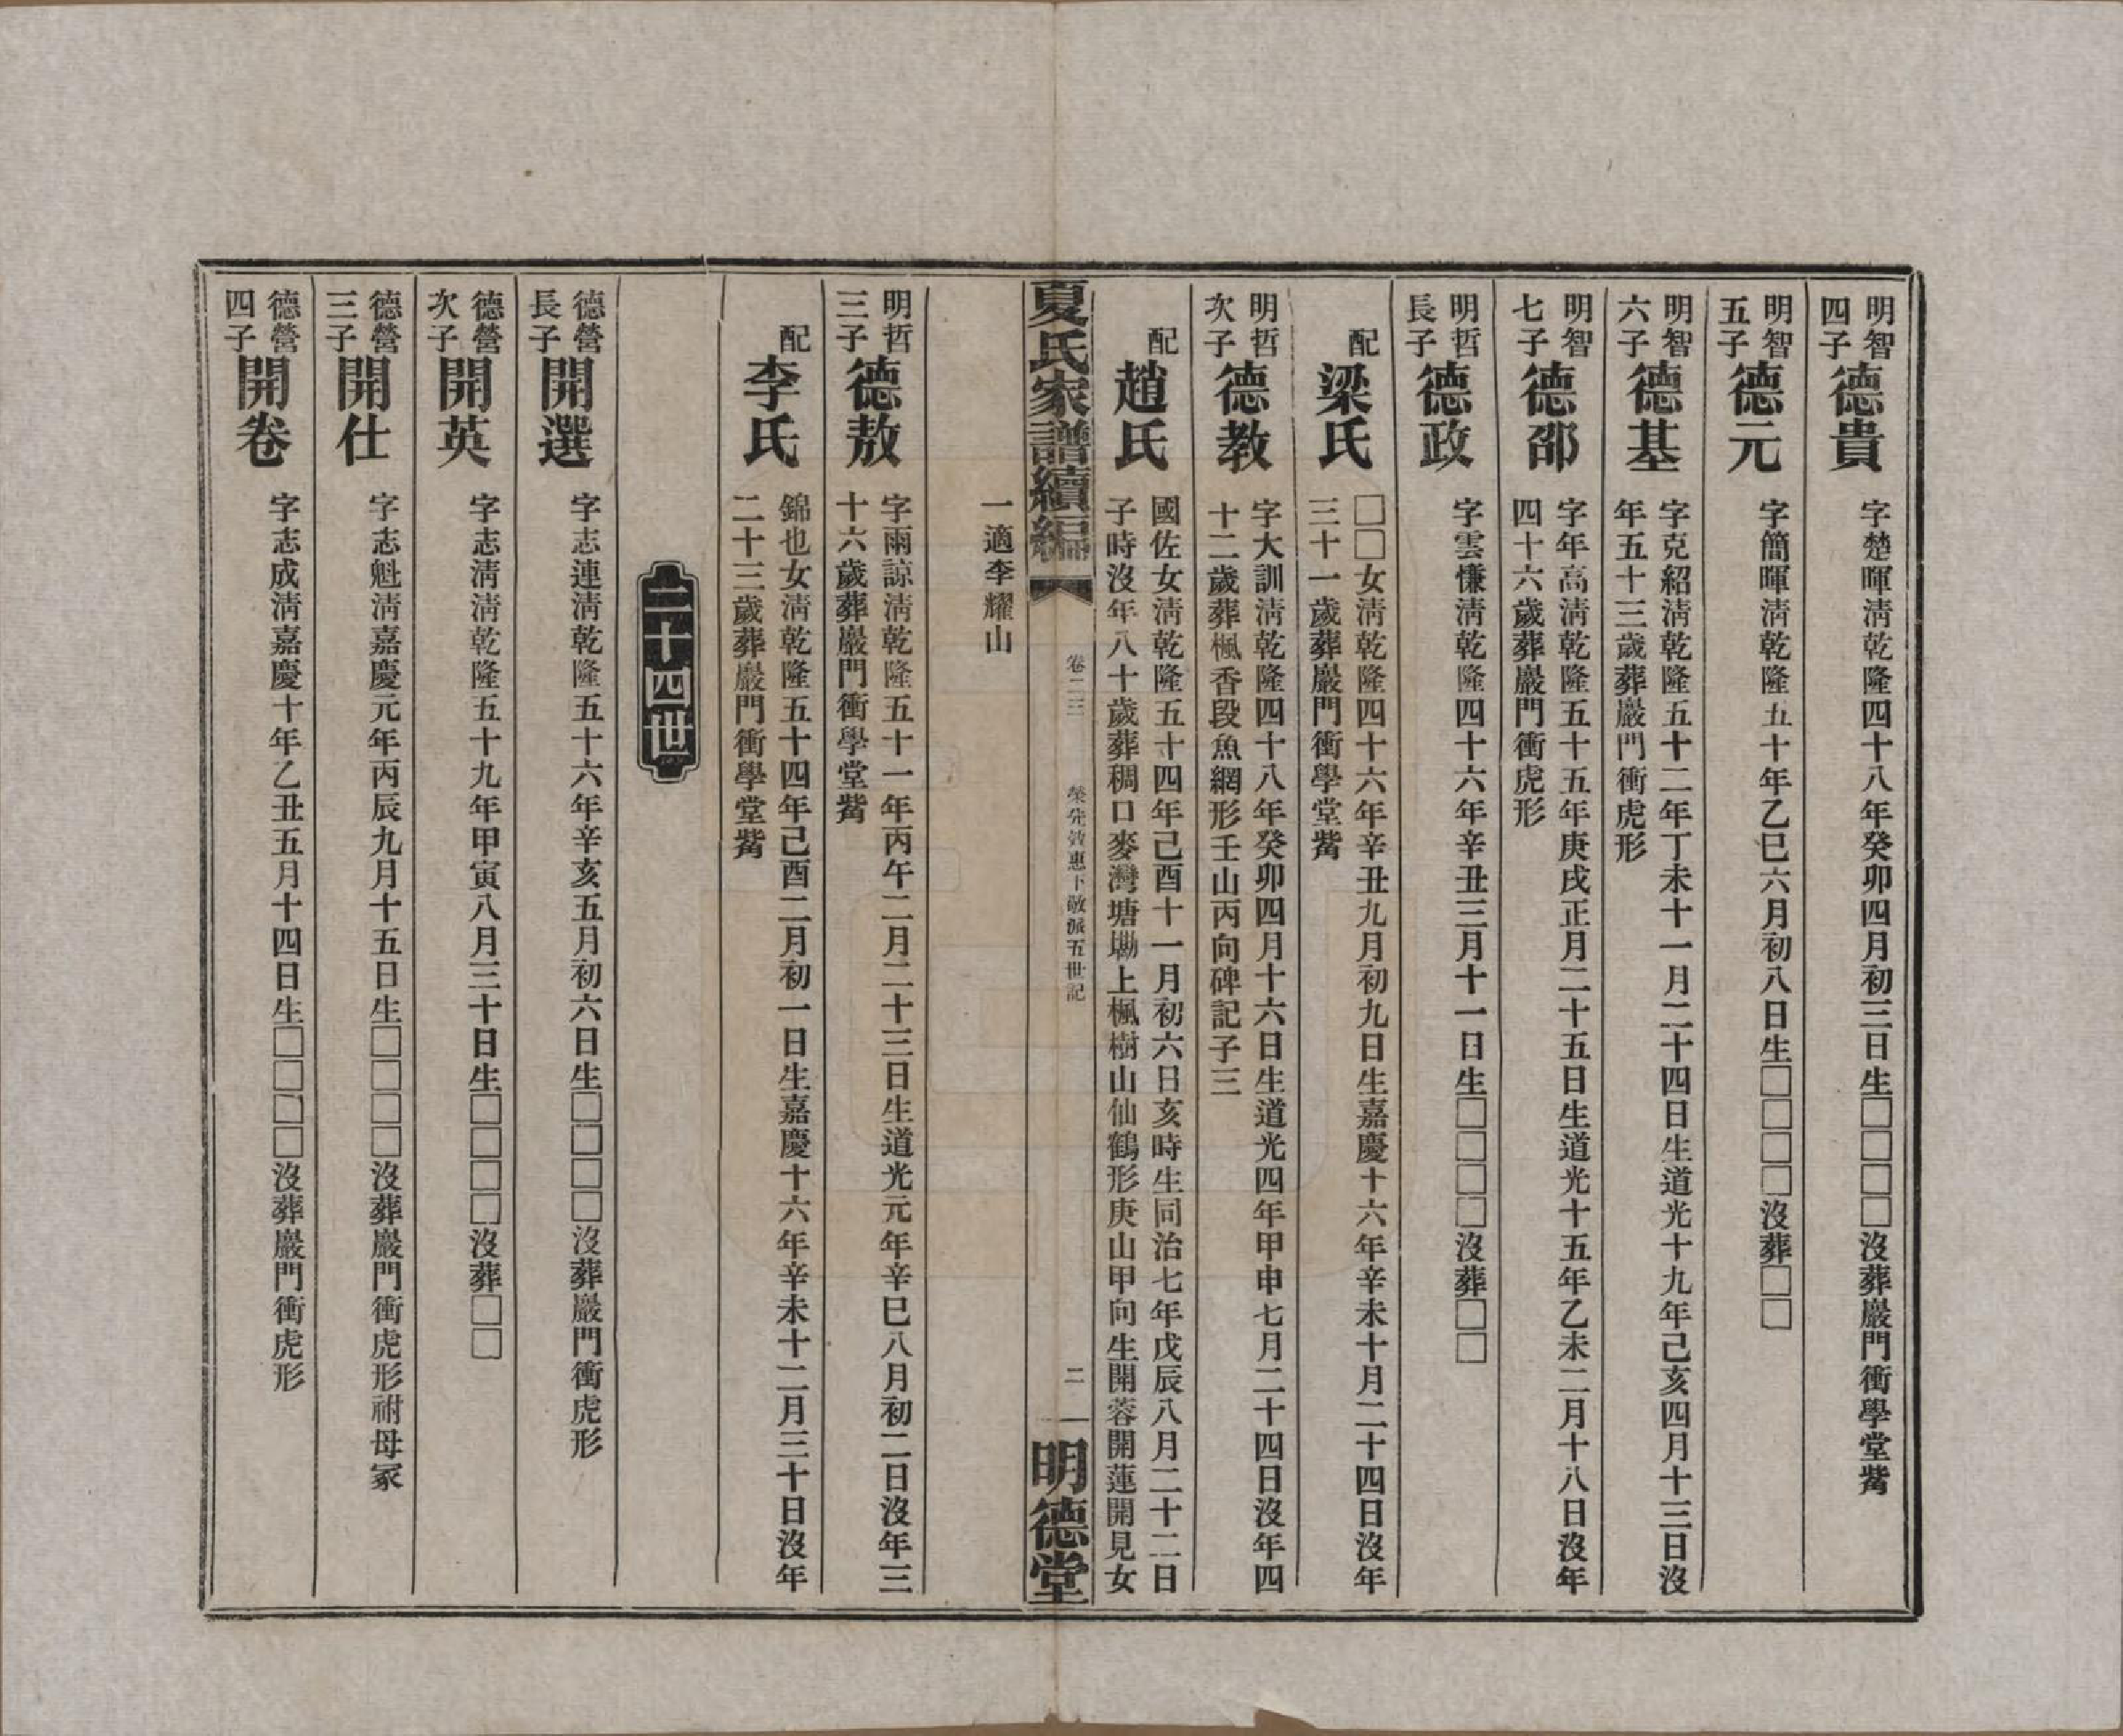 明智
四子
德貴
字楚暉淸乾隆四十八年癸卯四月初三日生□□□□沒葬巖門衝學堂觜
明智
五子
德元
字簡暉淸乾隆五十年乙巳六月初八日生□□□□沒葬□□
明智
六子
德基
字克紹淸乾隆五十二年丁未十一月二十四日生道光十九年己亥四月十三日沒
年五十三歲葬巖門衝虎形
明智
七子
德邵
字年高淸乾隆五十五年庚戌正月二十五日生道光十五年乙未二月十八日沒年
四十六歲葬巖門衝虎形
明哲
長子
德政
字雲慊淸乾隆四十六年辛丑三月十一日生□□□□沒葬□□
配
梁氏
□□女淸乾隆四十六年辛丑九月初九日生嘉慶十六年辛未十月二十四日沒年
三十一歲葬巖門衝學堂觜
明哲
次子
德教
字大訓淸乾隆四十八年癸卯四月十六日生道光四年甲申七月二十四日沒年四
十二歲葬楓香段魚網形壬山丙向碑記子三
配
趙氏
國佐女淸乾隆五十四年己酉十一月初六日亥時生同治七年戊辰八月二十二日
子時沒年八十歲葬稠口麥灣塘坳上楓樹山仙鶴形庚山甲向生開蓉開蓮開見女
夏氏家譜續編
卷二三
榮 下敬派五世記
二
明德堂
一適李耀山
明哲
三子
德敖
字雨諒淸乾隆五十一年丙午二月二十三日生道光元年辛巳八月初二日沒年三
十六歲葬巖門衝學堂觜
配
李氏
錦也女淸乾隆五十四年己酉二月初一日生嘉慶十六年辛未十二月三十日沒年
二十三歲葬巖門衝學堂觜
二十四世
德營
長子
開選
字志連淸乾隆五十六年辛亥五月初六日生□□□□沒葬巖門衝虎形
德營
次子
開英
字志淸淸乾隆五十九年甲寅八月三十日生□□□□沒葬□□
德營
三子
開仕
字志魁淸嘉慶元年丙辰九月十五日生□□□□沒葬巖門衝虎形祔母冢
德營
四子
開卷
字志成淸嘉慶十年乙丑五月十四日生□□□□沒葬巖門衝虎形